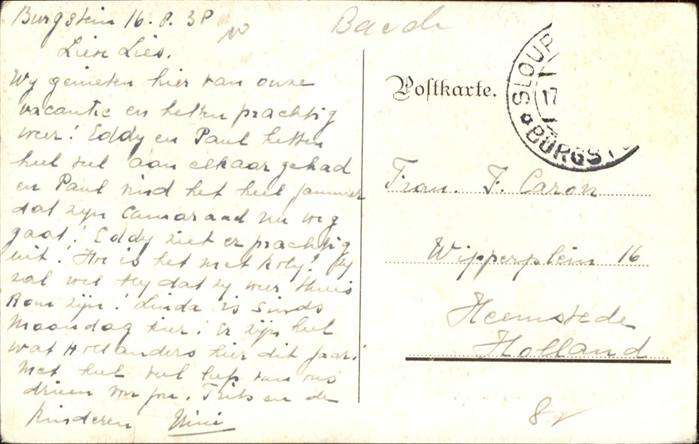 Burgstein 16.8.38
Lieve Lies.
Wy genieten hier van onze
vacantie en hebben prachtig
weer! Eddy en Paul hebben
heel veel aan elkaar gehad
en Paul vind het heel jammer
dat zijn Camaraad nu weg
gaat! Eddy ziet er prachtig
uit! Hoe is het met Roly! Hy
zal wel bly dat zy weer thuis
kom zijn! Linda is sinds
Maandag hier! Er zijn heel
wat Hollanders hier dit jaar!
Met heel veel liefs van ons
drieen voor jou. Frits en de
kinderen Mini
Baech
Postkarte.
SLOUP
17
BÜRGST
Frau. F. Caron
Wipperplein 16
Heemstede
Holland
8